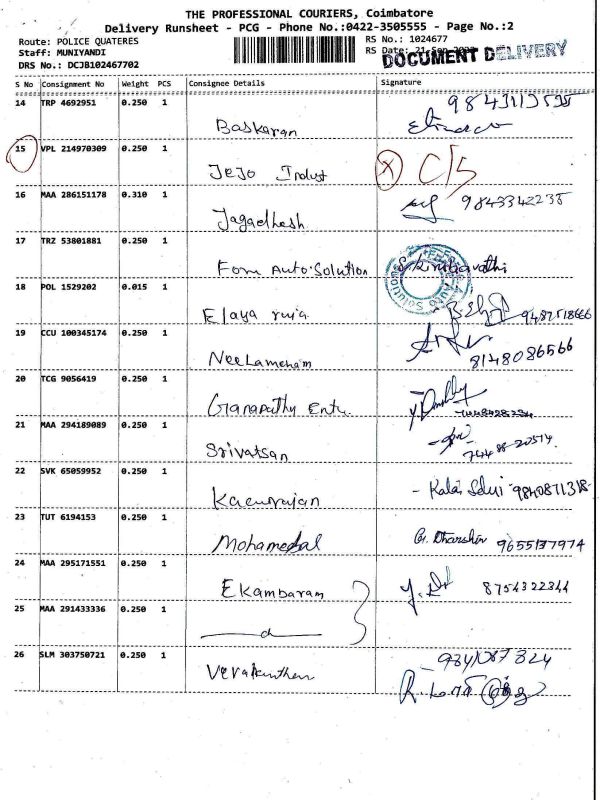 THE PROFESSIONAL COURIERS, Coimbatore
Delivery Runsheet - PCG - Phone No.:0422-3505555 - Page No.:2
Route: POLICE QUATERES
RS No.: 1024677
Staff: MUNIYANDI
RS Date:
DOCUMENT DELIVERY
DRS No.: DCJB102467702
S No Consignment No Weight PCS Consignee Details Signature
14 TRP 4692951 0.250 1
Baskaran
15 VPL 214970309 0.250 1
JeJo Indust C/S
16 MAA 286151178 0.310 1
Jagadhesh 9843342235
17 TRZ 53801881 0.250 1
Fom Auto Solution
18 POL 1529202 0.015 1
Elaya 9487518666
19 CCU 100345174 0.250 1
Neelamenam 8148086566
20 TCG 9056419 0.250 1
Ganapathy Ent.
21 MAA 294189089 0.250 1
Srivatsan
22 SVK 65059952 0.250 1
- Kalai Selvi - 9840871318
23 TUT 6194153 0.250 1
Mohamedal G. Dharshin 9655137974
24 MAA 295171551 0.250 1
Ekambaram 8754322344
25 MAA 291433336 0.250 1
26 SLM 303750721 0.250 1